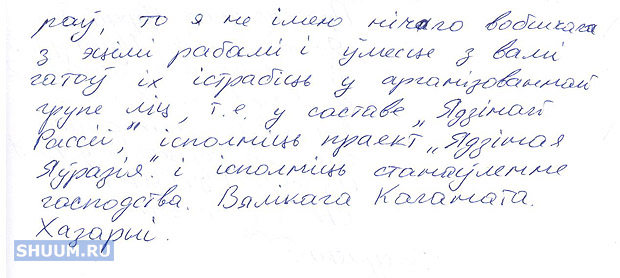 раў, то я не імею нічаго вобшчага
з эцімі рабамі і ўмесце з вамі
гатоў іх істрабіць у арганізованнай
групе ліц, т.е. у составе „Ядзінай
Рассіі", ісполніць праект „Ядзіная
Яўразія". і ісполніць станаўленне
господства. Вялікага Каганата.
Хазарыі.
SHUUM.RU